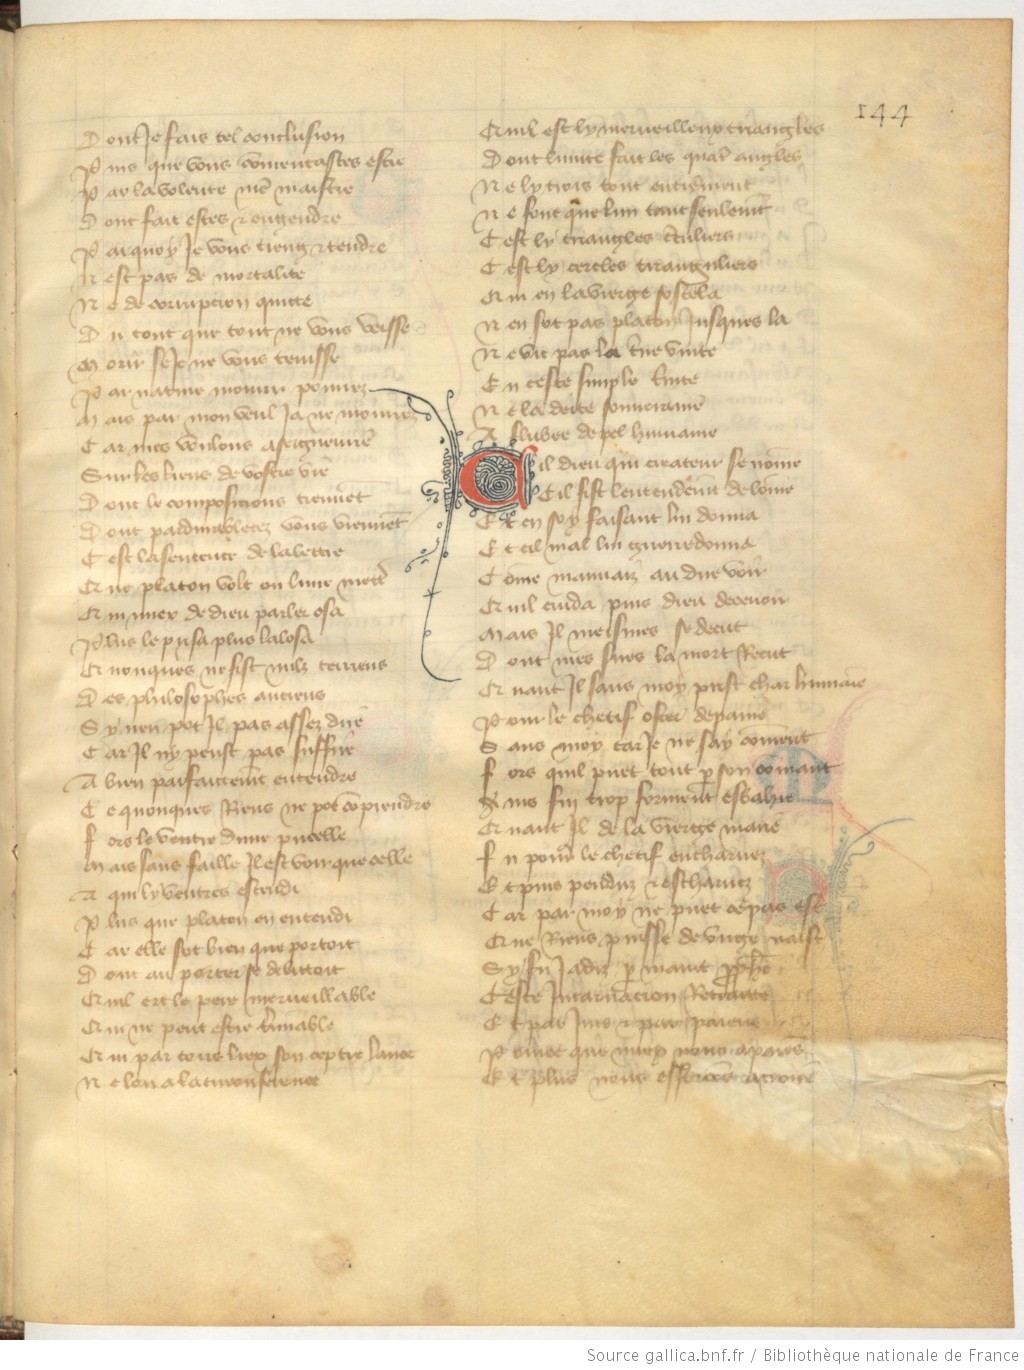 144
Dont Je fais tel conclusion
Puis que vous cōmencastes estre
Par la volente mō maistre
Dont fait estes et engendre
Par quoy Je vous tieng et tendre
Nest pas de mortalite
Ne de corrupcion quitte
Du tout que tout ne vous veisse
Morir se Je ne vous tenisse
Par nature mourir pourrez
Mais par mon veul Ja ne mourrez
Car mes vouloirs a seigneurie
Sur les liens de vostre vie
Dont le composicions tiennēt
Dont pardurabletez vous viennēt
Cest la sentence de la lettre
Que platon volt ou livre mettre
Qui miex de dieu parler osa
Plus le prisa plus lalosa
Quonques ne fist nulz terriens
Des philosophes anciens
Sy nen pot Il pas assez dire
Car Il ny peust pas suffire
A bien parfaictemēt entendre
Ce quonques Riens ne pot cōprendre
Fors le ventre dune pucelle
Mais sans faille Il est voir que celle
A qui ly ventres estendi
Plus que platon en entendi
Car elle sot bien que portoit
Dont au porter se delittoit
Quil ert le pere merveillable
Qui ne peut estre t̄minable
Qui par tous liex son ceptre lance
Ne lon a la circonference
Quil est ly merveilleux triangles
Dont lunite fait les quatre angles
Ne ly trois tout entierment
Ne font que lun tant seulemēt
Cest ly triangles circuliers
Cest ly cercles triangulliers
Qui en la vierge sostela
Nen sot pas platon Jusques la
Ne vit pas la trine unite
En ceste simple trinite
Ne la deite souveraine
Affublee de pel humaine
Cil dieu qui createur se nōme
Cil fist lentendemt de lōme
Et en soy faisant lui donna
Et cil mal lui guerredonna
Cōme mauvaiz au dire voir
Quil cuida puis dieu decevoir
Mais Il meismes se decut
Dont mes sires la mort Recut
Quant Il sans moy prist char humaīe
Pour le chetif oster de paine
Sans moy car Je ne say cōment
Fors quil puet tout p son cōmant
Ains fui trop formēt esbahie
Quant Il de la vierge marie
Fu pour le chetif encharnez
Et puis penduz et escharnez
Car par moy ne puet ce pas estre
Que Riens puisse de virge naistre
Sy fu Jadiz p maint pphē
Ceste Incarnacion Retraitte
Et par Juis et par paiens